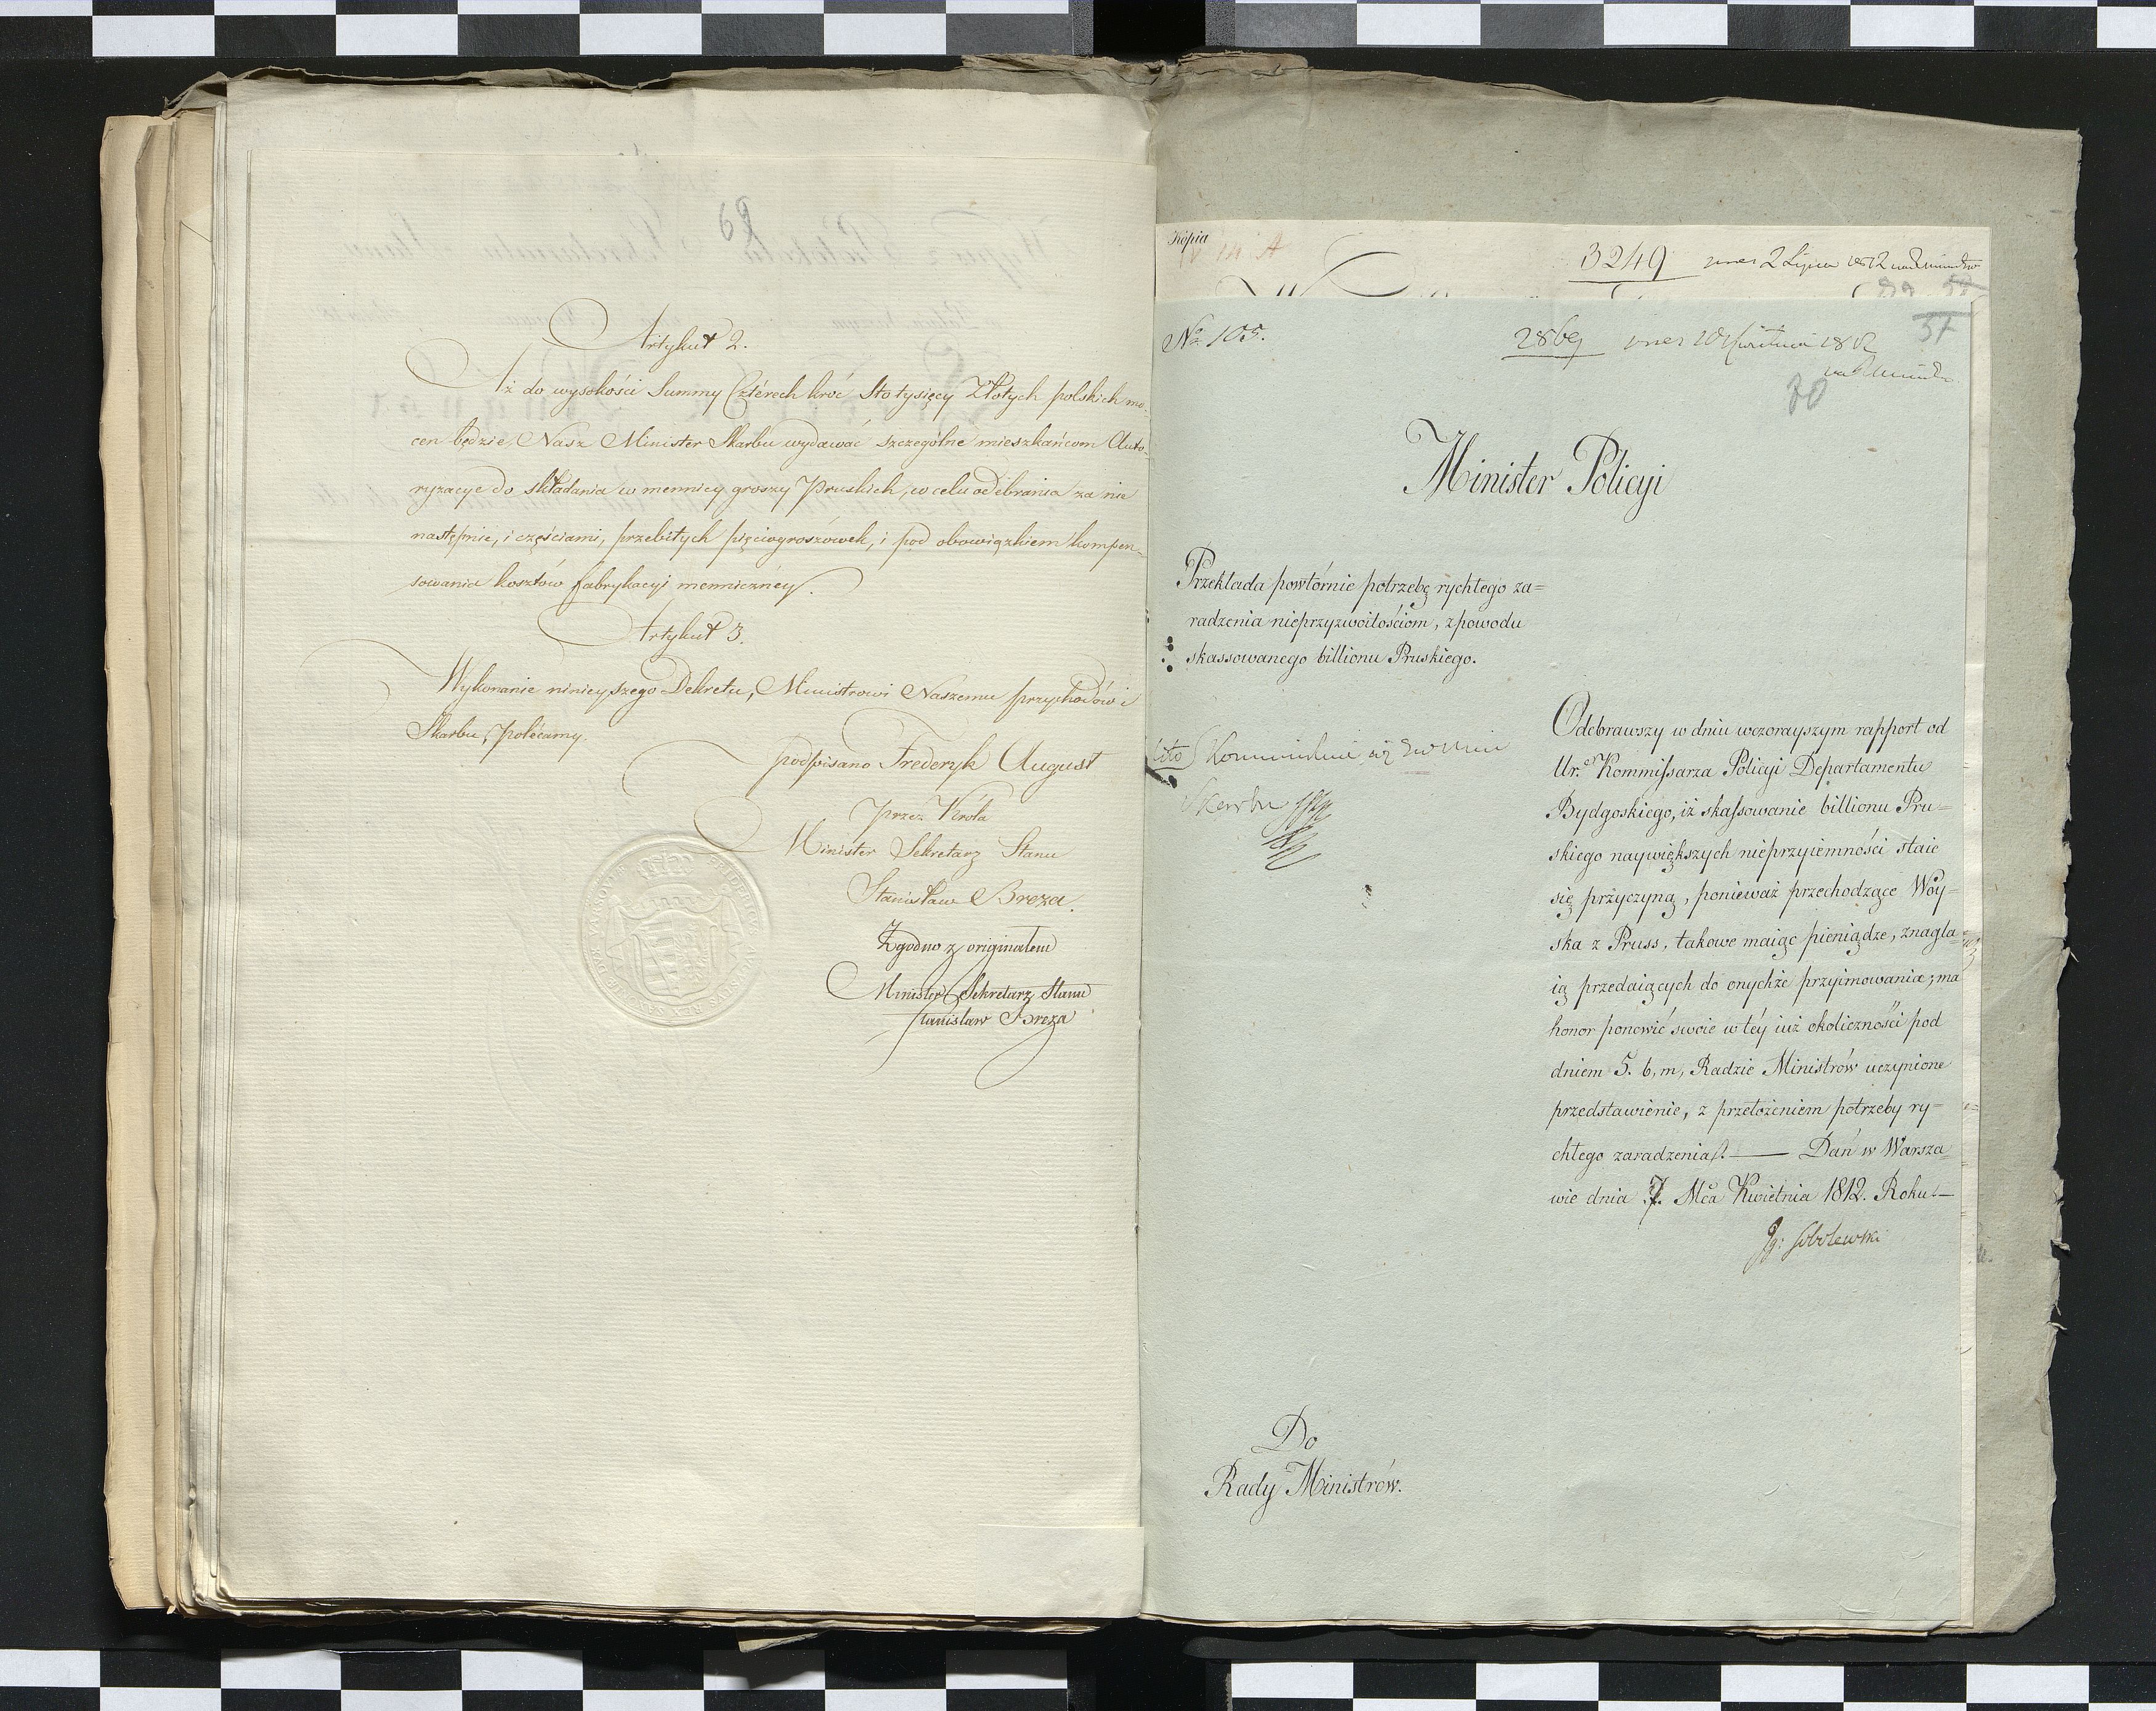 Artykuł 2.
Iż do wysokości Summy Cztérech kroć Sto tysięcy Złotych polskich mo-
cen będzie, Nasz Minister Skarbu wydawać szczególne mieszkańcom Auto-
ryzacye do składania w mennicy groszy Pruskich, w celu odebrania za nie
następnie, i częściami, przebitych pięciogroszówek, i pod obowiązkiem kompen-
sowania kosztów fabrykacyi menniczney.
Artykuł 3.
Wykonanie ninieyszego Dekretu, Ministrowi Naszemu przychodów i
Skarbu, polécamy.
podpisano Frederyk August
Przez Króla
Minister Sekretarz Stanu
Stanisław Breza.
Zgodno z originałem
Minister Sekretarz Stanu
Stanisław Breza
69
Kopia
3249 2 Lipca 1812
No 105.
2869 Kwietnia 1812
37
70
Minister Policyi
Przekłada powtórnie potrzebę rychłego za=
radzenia nieprzyzwoitościom, z powodu
skassowanego billionu Pruskiego.
Odebrawszy w dniu wczorayszym rapport od
Ur.er Kommissarza Policyi Departamentu
Bydgoskiego, iż skassowanie billionu Pru=
skiego naywiększych nieprzyiemności staie
się przyczyną, ponieważ przechodzące Woy=
ska z Pruss, takowe maiąc pieniądze, znagla=
ią przedaiących do onychże przyimowania; ma
honor ponowić swoie w téy iuż okoliczności pod
dniem 5. b, m, Radzie Ministrów uczynione
przedstawienie, z przełożeniem potrzeby ry=
chłego zaradzenia. — Dań w Warsza=
wie dnia 7. Mca Kwietnia 1812. Roku. —
Ig: Sobolewski
Skarbu
Do
Rady Ministrów.